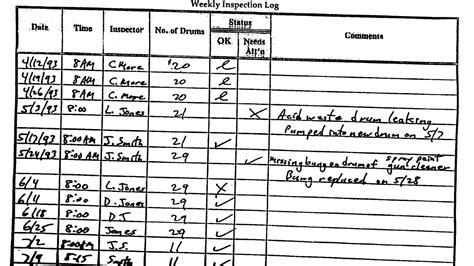 Weekly Inspection Log
Date Time Inspector No. of Drums Status Comments
OK Needs Att'n
4/12/93 8AM C. More 20 e
4/19/93 8AM C. More 20 e
4/26/93 8AM C. More 20 e
5/3/93 8:00 L. Jones 21 X Acid waste drum leaking
Pumped into new drum on 5/7
5/17/93 8:00AM J. Smith 21 ✓
5/24/93 8:00 AM J. Smith 29 ✓ Missing bung on drum of spray paint gun cleaner
Bung replaced on 5/28
6/4 8:00 L. Jones 29 X
6/11 8:00 D. Jones 29 ✓
6/18 8:00 D.J. 29 ✓
6/25 8:00 Jones 29 ✓
7/2 8:00AM J.S. 11 ✓
7/9 8:15 Smith 11 ✓